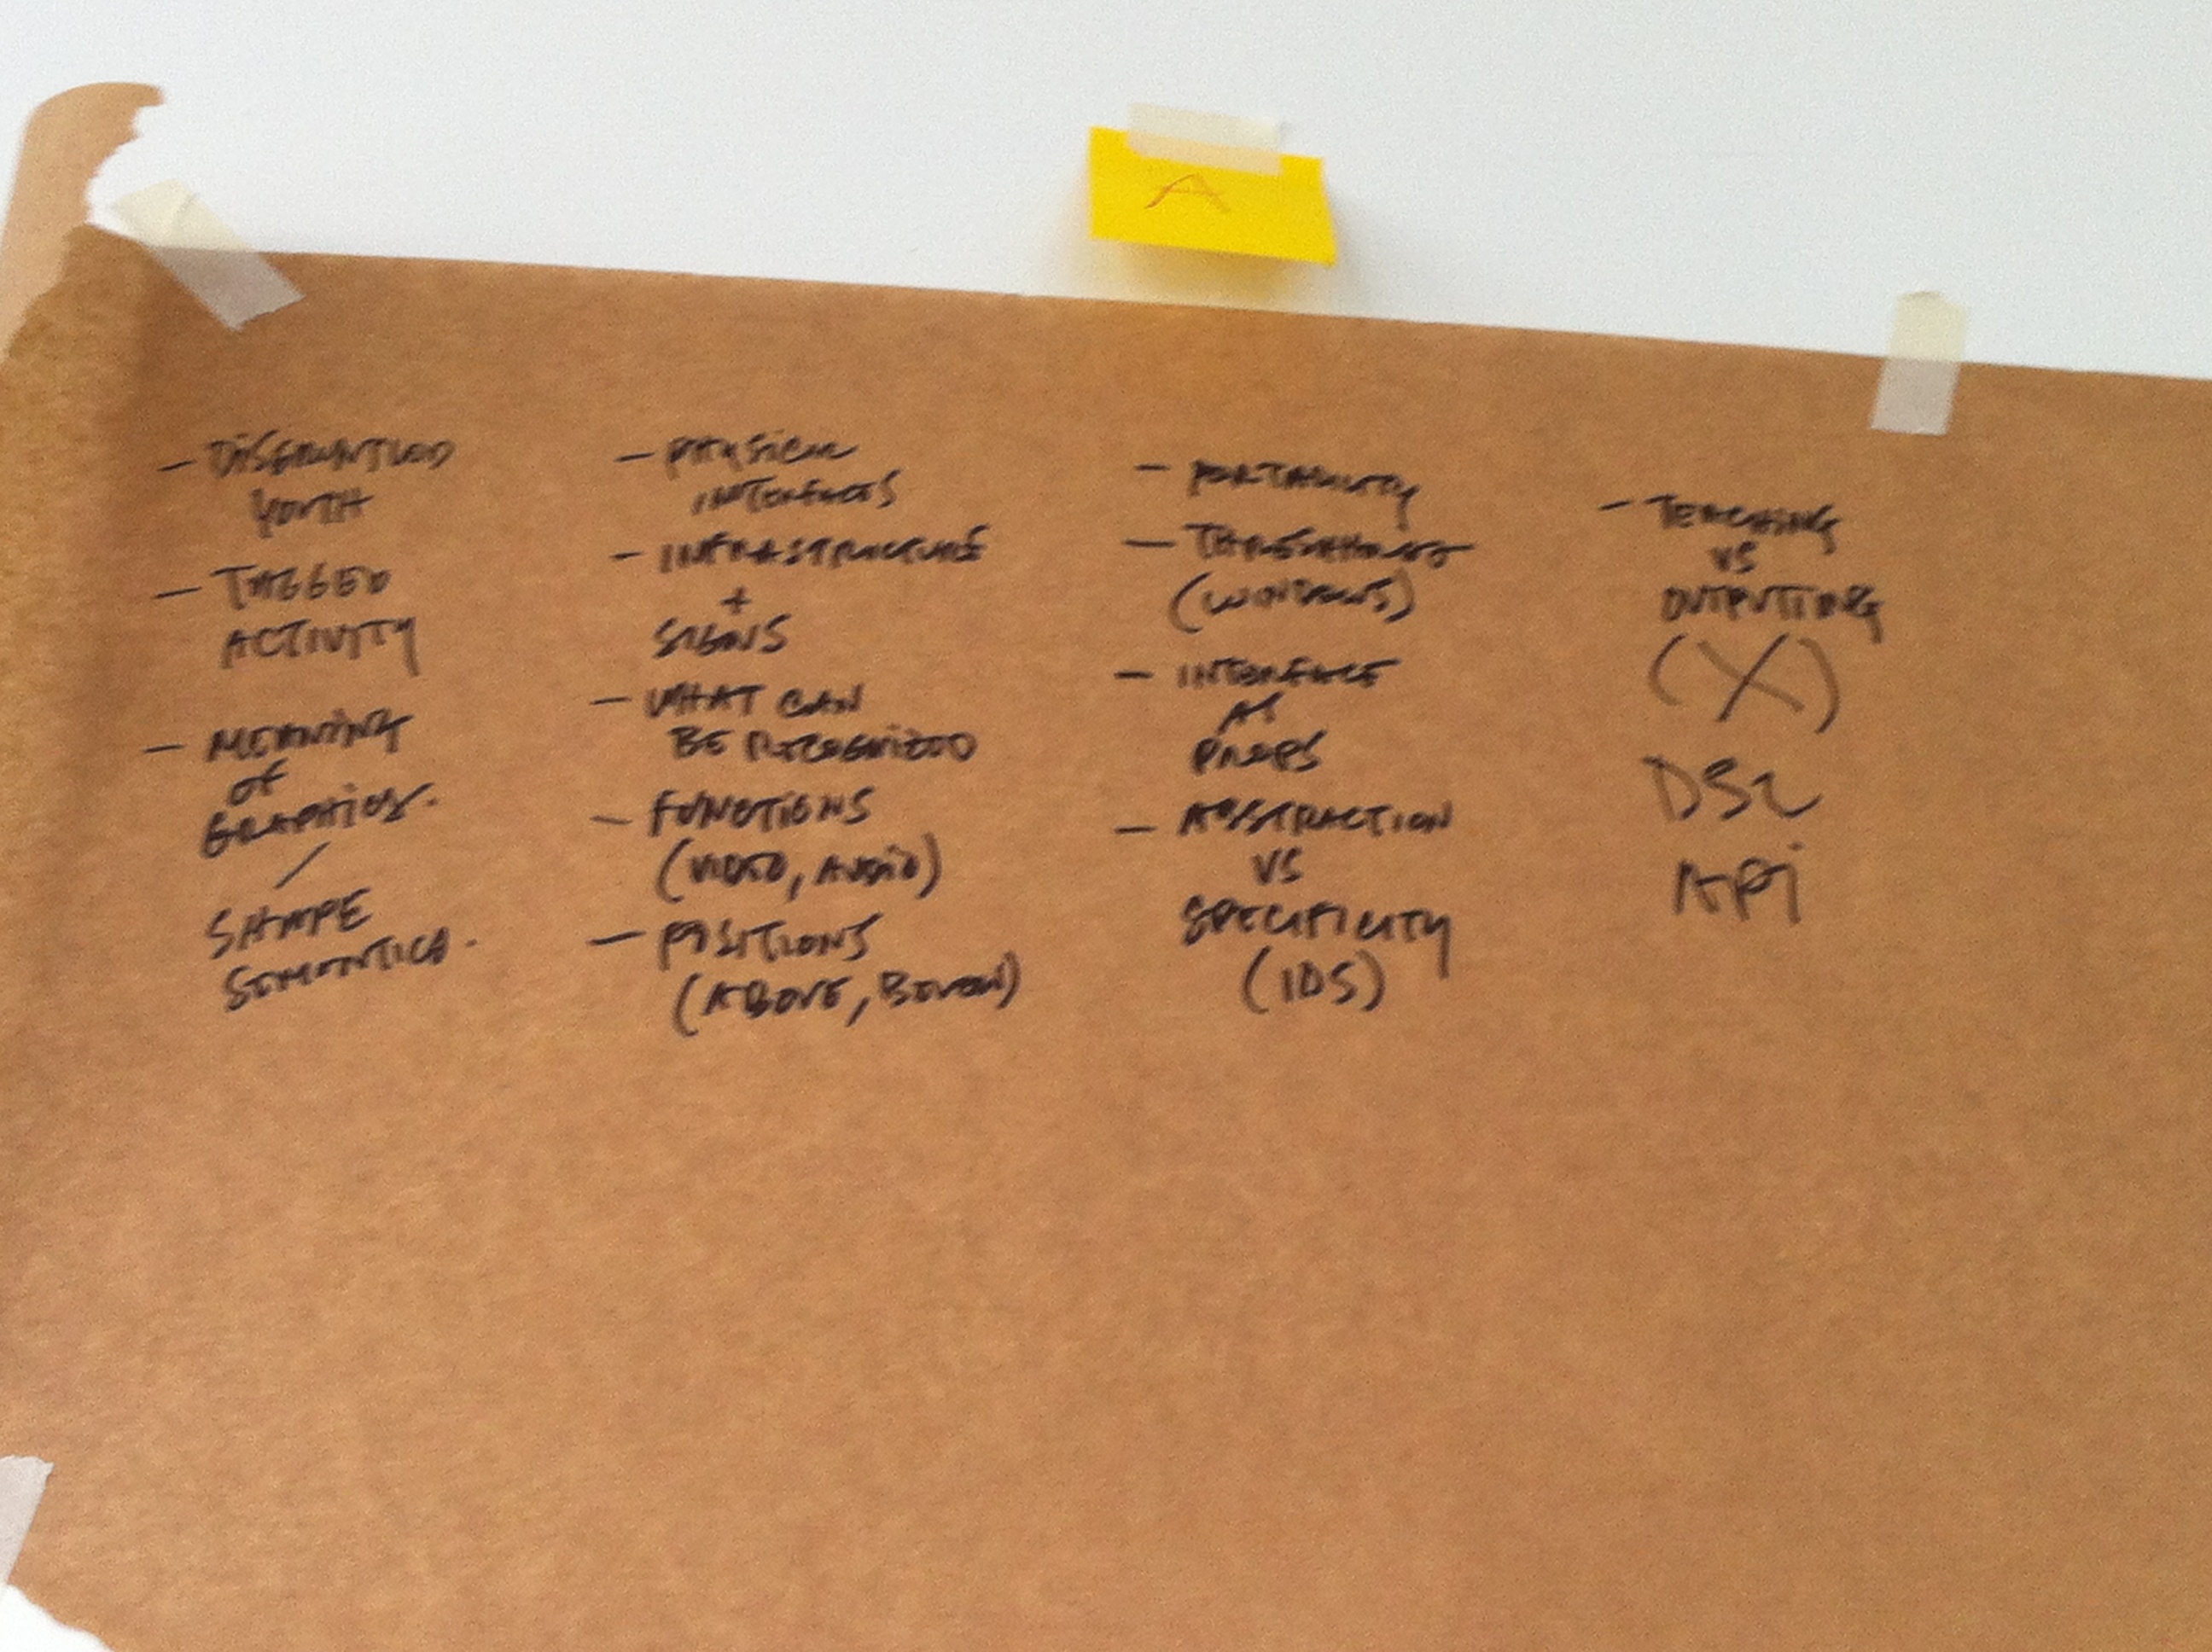 A
- DISGRUNTLED
YOUTH
- TAGGED
ACTIVITY
- MEANING
OF
GRAPHICS.
/
SHAPE
SEMANTICS.
- PHYSICAL
INTERFACES
- INFRASTRUCTURE
+
SIGNS
- WHAT CAN
BE RECOGNIZED
- FUNCTIONS
(VIDEO, AUDIO)
- POSITIONS
(ABOVE, BELOW)
- PORTABILITY
- THRESHOLDS
(WINDOWS)
- INTERFACE
AS
PROPS
- ABSTRACTION
VS
SPECIFICITY
(IDS)
- TEACHING
VS
OUTPUTTING
(X)
DSL
API